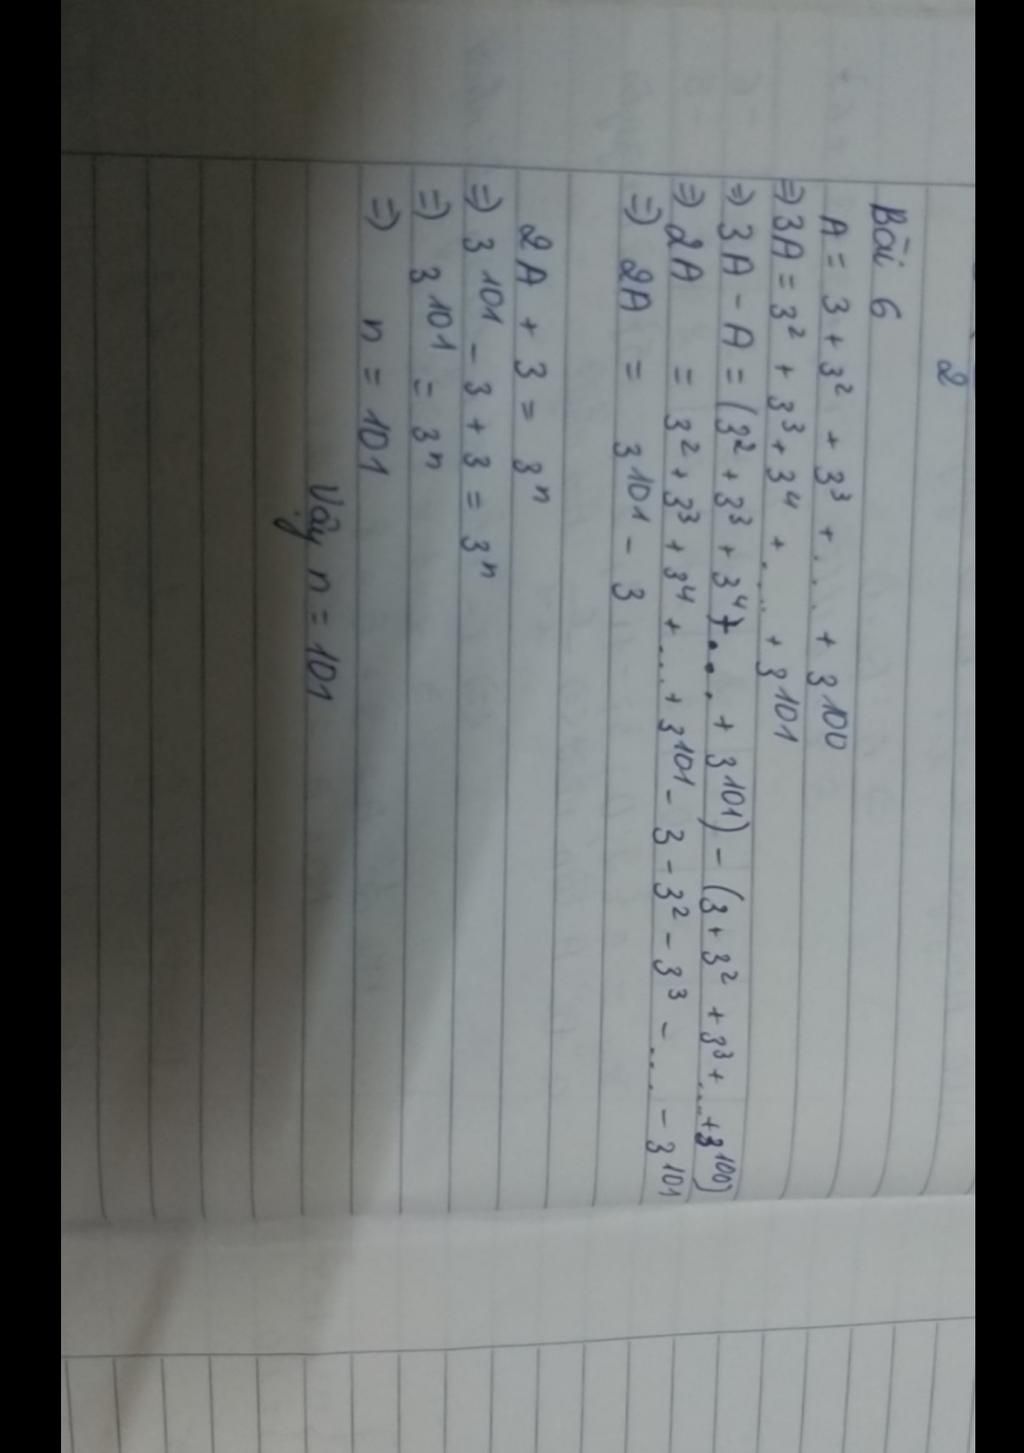 2
Bài 6
A = 3 + 3² + 3³ + .... + 3¹⁰⁰
=> 3A = 3² + 3³ + 3⁴ + .... + 3¹⁰¹
=> 3A - A = (3² + 3³ + 3⁴ + .... + 3¹⁰¹) - (3 + 3² + 3³ + .... + 3¹⁰⁰)
=> 2A = 3² + 3³ + 3⁴ + .... + 3¹⁰¹ - 3 - 3² - 3³ - .... - 3¹⁰¹
=> 2A = 3¹⁰¹ - 3
2A + 3 = 3ⁿ
=> 3¹⁰¹ - 3 + 3 = 3ⁿ
=> 3¹⁰¹ = 3ⁿ
=> n = 101
Vậy n = 101